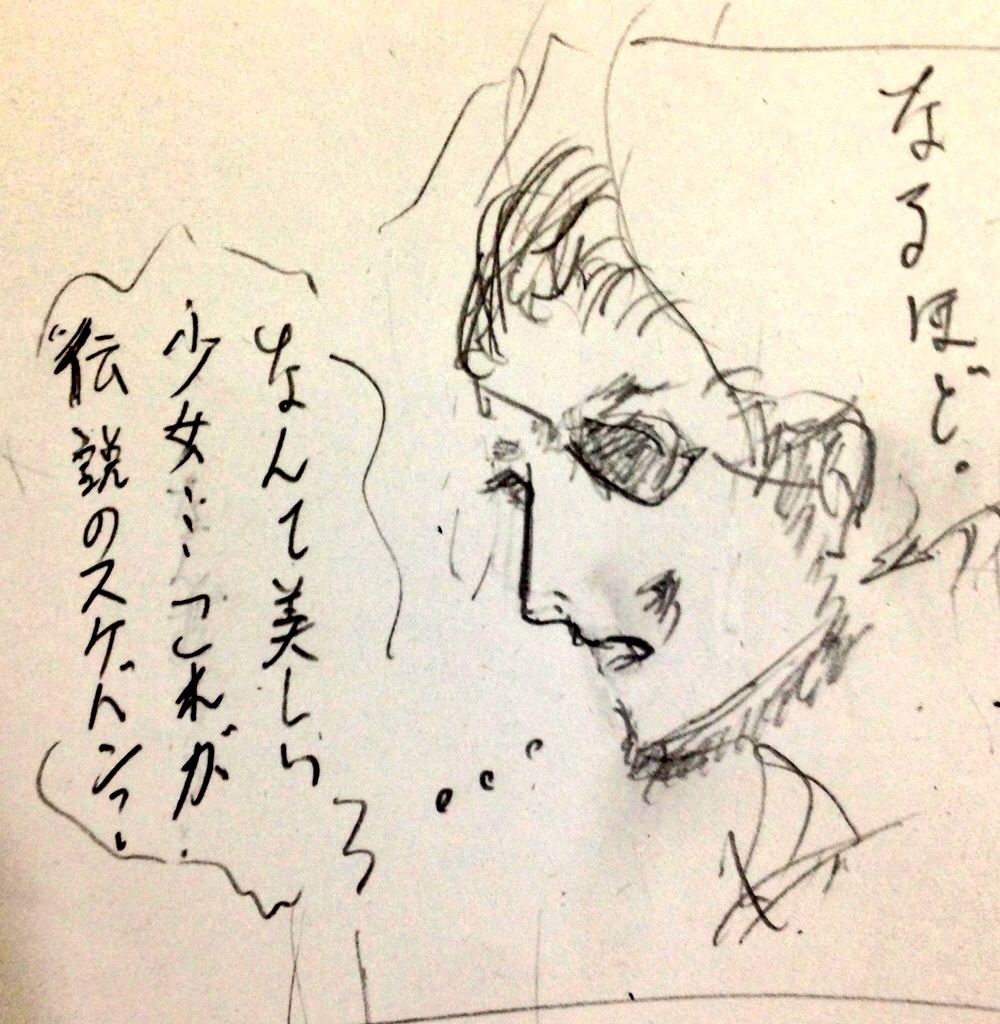 なるほど.
なんて美しい
少女…これが
伝説のスケバン？